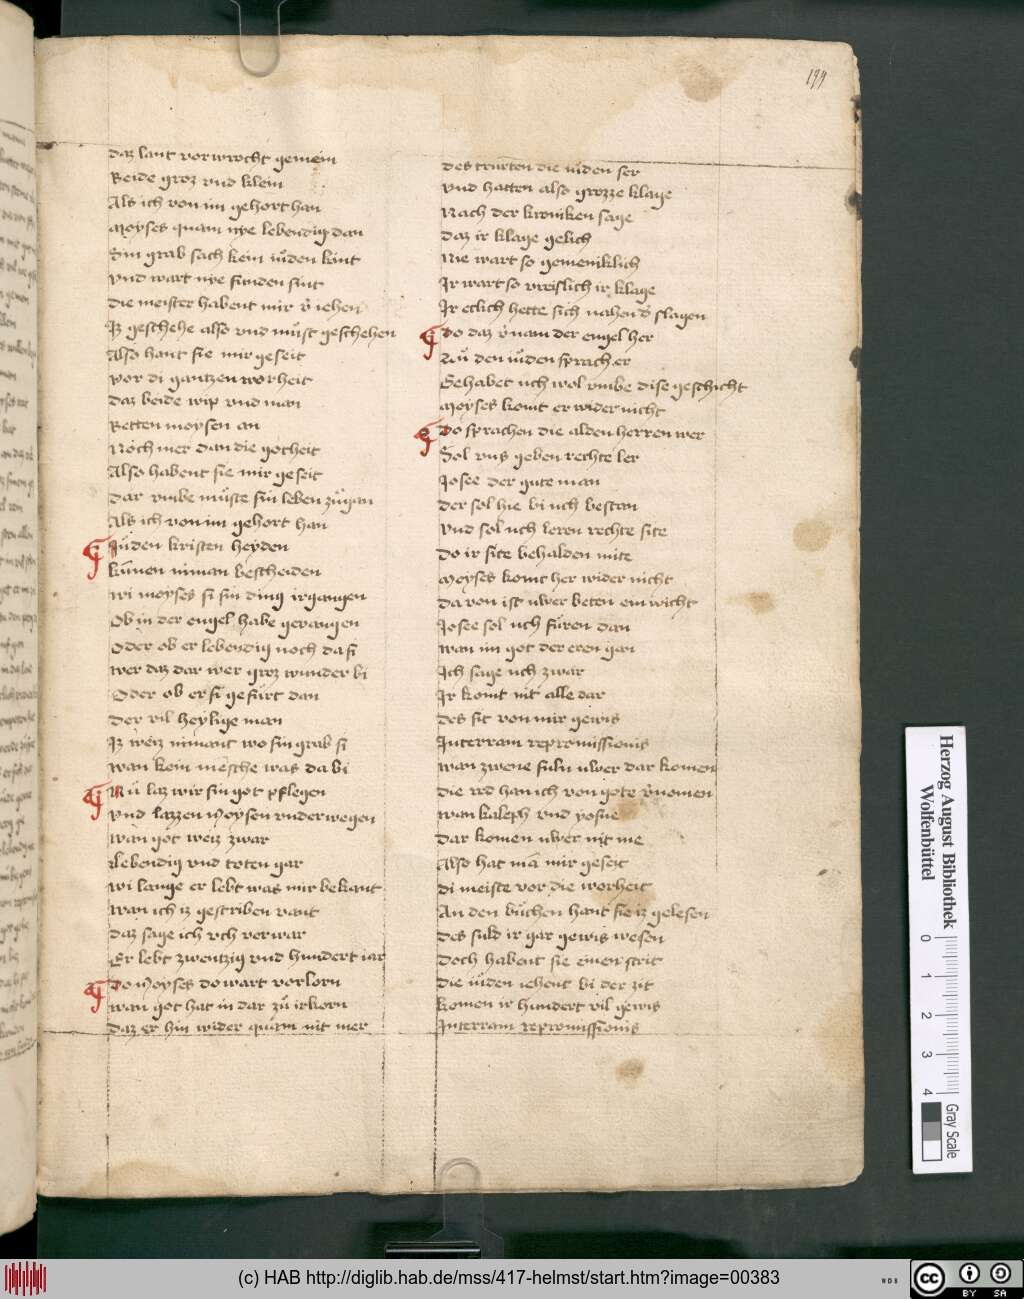 199
daz lant vorworcht gemein
Beide groz vnd klein
Als ich von im gehort han
Moyses quam nye lebendig dan
Sin grab sach kein iuͦden kint
Vnd wart nye funden sint
die meister habent mir v̓iehen
Iz geschehe also vnd muͦst geschehen
Also hant sie mir geseit
vor di gantzen worheit
daz beide wip vnd man
Betten moysen an
Noch mer dan die gotheit
Also habent sie mir geseit
dar vmbe muͦste sin leben zuͦgan
Als ich von im gehort han
Iuͦden kristen heyden
kūnen niman bescheiden
wi moyses si sin ding irgangen
Ob in der engel habe gevangen
Oder ob er lebendig noch da si
wer daz dar wer groz wunder bi
Oder ob er si gefuͦrt dan
der vil heylige man
Iz weiz nimant wo sin grab si
wan kein mesche was da bi
Nuͦ laz wir sin got pflegen
vnd lazzen Moysen vnderwegen
wan got weiz zwar
Lebendig vnd toten gar
wi lange er lebt was mir bekant
wan ich iz gestriben vant
daz sage ich vch vorwar
Er lebt zwentzig vnd hundert iar
Do Moyses do wart vorlorn
wan got hat in dar zuͦ irkorn
daz er hin wider quam nit mer
des trurten die iuͦden ser
vnd hatten also grozze klage
Nach der kroniken sage
daz ir klage gelich
Nie wart so gemeniklich
Ir wart so vreislich ir klage
Ir etlich hette sich nahen d̓ slagen
Do daz v̓nam der engel her
Zuͦ den iuͦden sprach er
Gehabet uch wol vmbe dise geschicht
Moyses komt er wider nicht
Do sprachen die alden herren wer
Sol vns geben rechte ler
Josee der gute man
der sol hie bi uch bestan
vnd sol uch leren rechte site
do ir site behalden mite
Moyses komt her wider nicht
da von ist uwer beten ein wicht
Josee sol uch fuͦren dan
wan im got der eren gan
Ich sage uch zwar
Ir komt nit alle dar
des sit von mir gewis
Interram repromissionis
wan zwene suln uwer dar komen
die red han ich von gote v̓nomen
wan kaleph vnd yosue
dar komen uwer nit me
Also hat mā mir geseit
di meiste vor die worheit
An den buͦchen hant sie iz gelesen
des suld ir gar gewis wesen
doch habent sie einen strit
die iuͦden iehent bi der zit
komen ir hundert vil gewis
Interram repromissionis
Herzog August Bibliothek
Wolfenbüttel
0 1 2 3 4
Gray Scale
(c) HAB http://diglib.hab.de/mss/417-helmst/start.htm?image=00383
WDB
cc BY SA